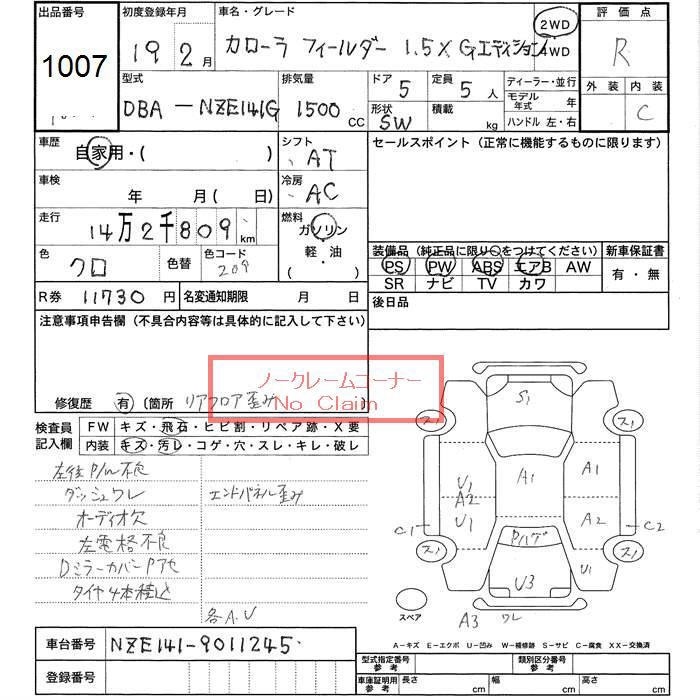 出品番号 初度登録年月 車名・グレード 評価点
1007 19 2月 カローラ フィールダー 1.5X Gエディション 2WD 4WD R
型式 排気量 ドア 定員 ディーラー・並行 外装 内装
DBA-NZE141G 1500 CC 5 5人 モデル年式 年 C
形状 SW 積載 kg ハンドル 左・右
車歴 シフト セールスポイント (正常に機能するものに限ります)
自家用・( ) AT
車検 冷房
年 月( 日) AC
走行 燃料
14万2千809 km ガソリン
色 色替 色コード 軽・油
クロ 209 ( ・ )
装備品 (純正品に限り○をつけてください) 新車保証書
PS PW ABS エアB AW 有・無
SR ナビ TV カワ
R券 11730円 名変通知期限 月 日 後日品
注意事項申告欄 (不具合内容等は具体的に記入して下さい)
ノークレームコーナー
No Claim
修復歴 有 (箇所 リアフロア歪み
検査員記入欄 FW キズ・飛石・ヒビ割・リペア跡・X要
内装 キズ・汚レ・コゲ・穴・スレ・キレ・破レ
左後P/W不良
ダッシュワレ エンドパネル歪み
オーディオ欠
左電格不良
DミラーカバーPアセ
タイヤ4本積込
各A.U
S1
ス1 ス1
A1 A1
U1
A2
U1 A2
C1 C2
Pハゲ
ス1 ス1
U3 U1
スペア
A3 ワレ
車台番号 NZE141-9011245
A-キズ E-エクボ U-凹み W-補修跡 S-サビ C-腐食 XX-交換済
登録番号
型式指定番号 参考 類別区分番号 参考
車庫証明用 参考 長さ cm 幅 cm 高さ cm